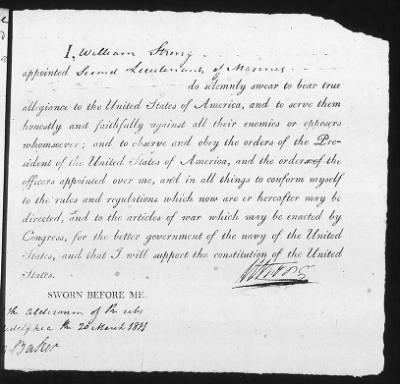 I, William Strong
appointed Second Lieutenant of Marines
do solemnly swear to bear true
allegiance to the United States of America, and to serve them
honestly and faithfully against all their enemies or opposers
whomsoever; and to observe and obey the orders of the Pre-
sident of the United States of America, and the orders of the
officers appointed over me, and in all things to conform myself
to the rules and regulations which now are or hereafter may be
directed, and to the articles of war which may be enacted by
Congress, for the better government of the navy of the United
States, and that I will support the constitution of the United
States.
SWORN BEFORE ME,
the alderman of the
the 20 March 1813
Baker